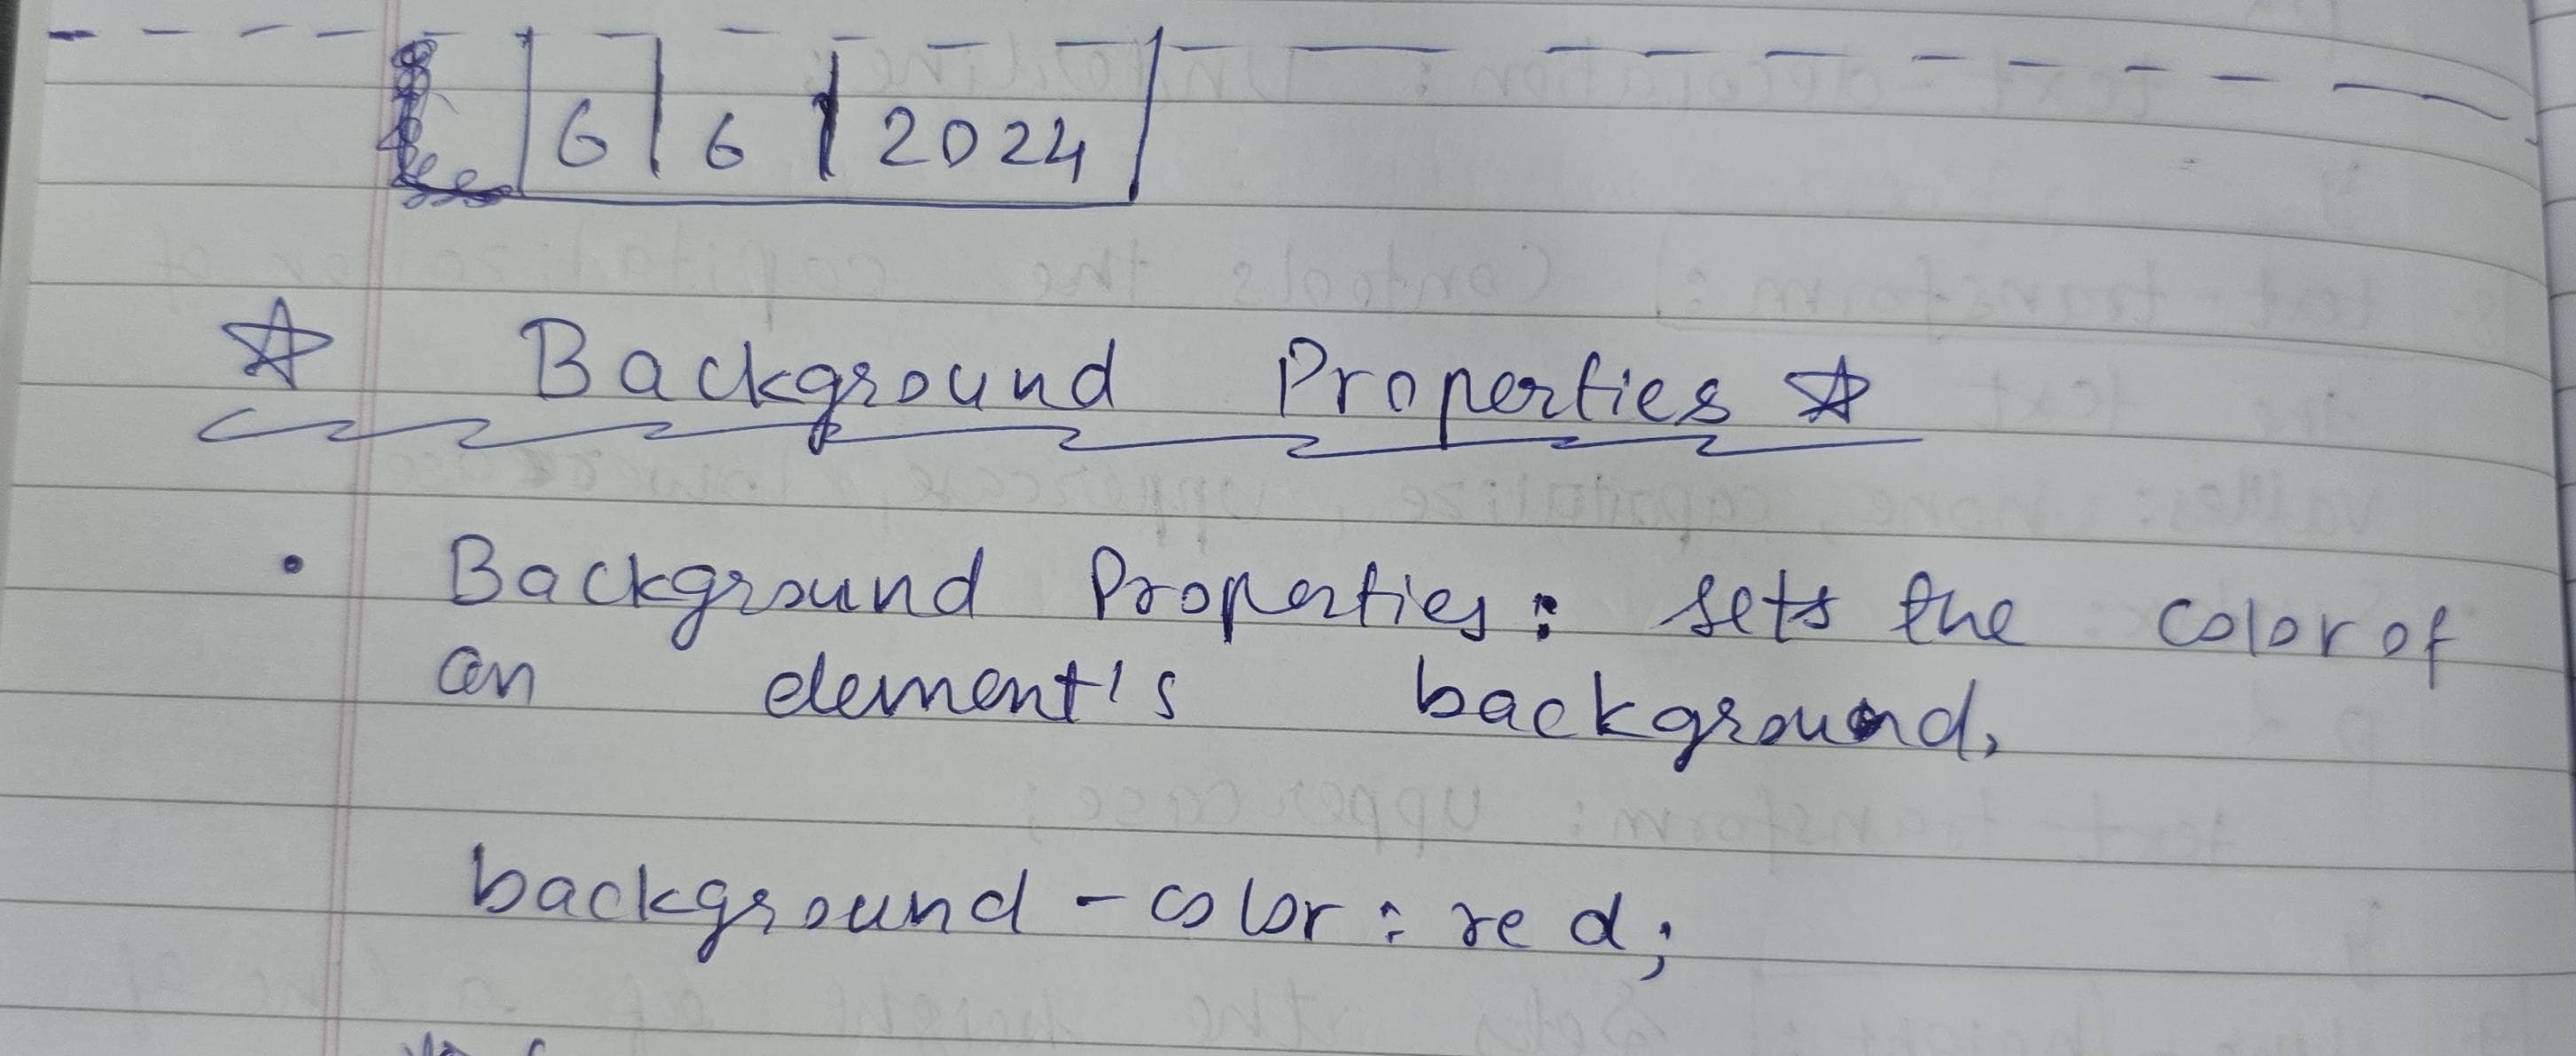 6 | 6 | 2024
☆ Background Properties ☆
• Background Properties: sets the color of
an element's background,
background-color: red;